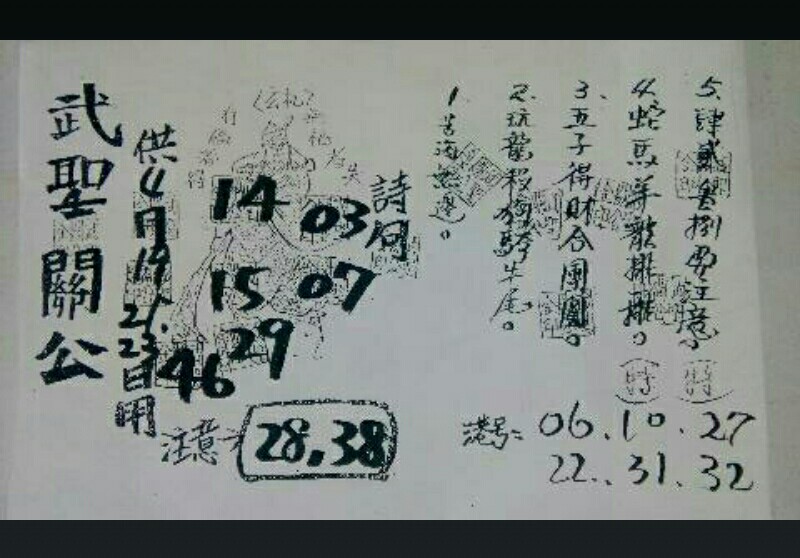 武聖關公
供4月19.21.23日用
14 03
15 07
46 29
注意
28,38
詩句
1.苦海無邊。
2.玩龍殺狗騎牛尾。
3.五子得財合團圓。
4.蛇馬羊龍排排。(特)
5.肆貳叁捌要注意。(特)
港号: 06.10.27
22.31.32